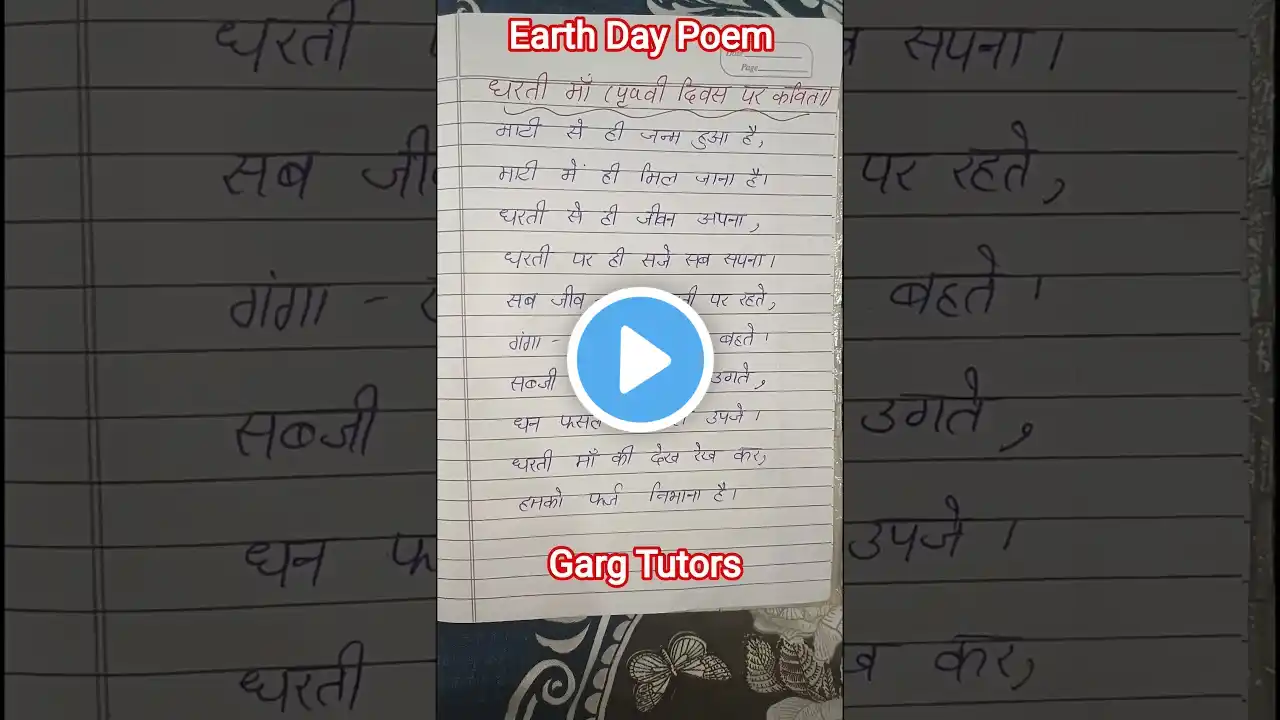 Earth Day Poem
Page
धरती माँ (पृथ्वी दिवस पर कविता)
माटी से ही जन्म हुआ है,
माटी में ही मिल जाना है।
धरती से ही जीवन अपना,
धरती पर ही सजे सब सपना।
सब जीव पर रहते,
गंगा - बहते।
सब्जी उगते,
धन फसल उपजे।
धरती माँ की देख रेख कर,
हमको फर्ज निभाना है।
Garg Tutors